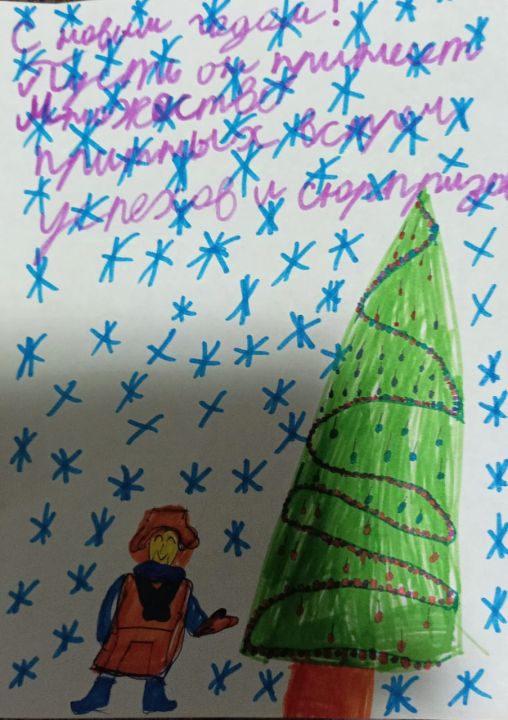 С новым годом!
Пусть он принесет
множество
приятных встреч
успехов и сюрпризов